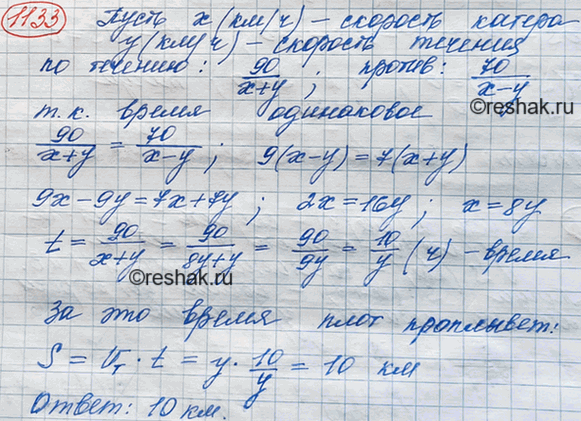 1133 Пусть x (км/ч) - скорость катера
y (км/ч) - скорость течения
по течению: 90/(x+y); против: 70/(x-y)
©reshak.ru
т.к. время одинаковое
90/(x+y) = 70/(x-y); 9(x-y)=7(x+y)
9x-9y=7x+7y; 2x=16y; x=8y
t = 90/(x+y) = 90/(8y+y) = 90/9y = 10/y (ч) - время
©reshak.ru
За это время плот проплывет:
S = Vт · t = y · 10/y = 10 км
©reshak.ru
Ответ: 10 км.